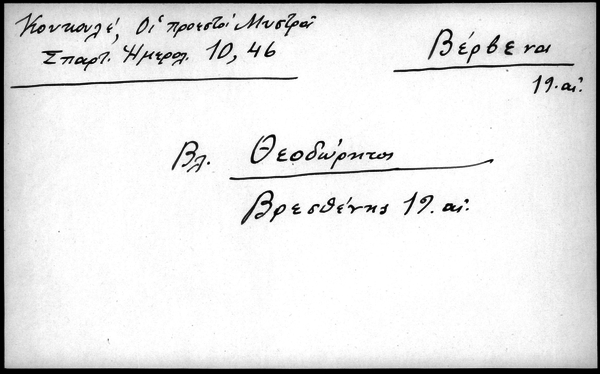 Κουκουλέ, Οἱ προεστοὶ Μυστρᾶ
Σπαρτ. Ἡμερολ. 10, 46
Βέρβενα
19. αἰ.
Βλ. Θεοδώρητος
Βρεσθένης 19. αἰ.